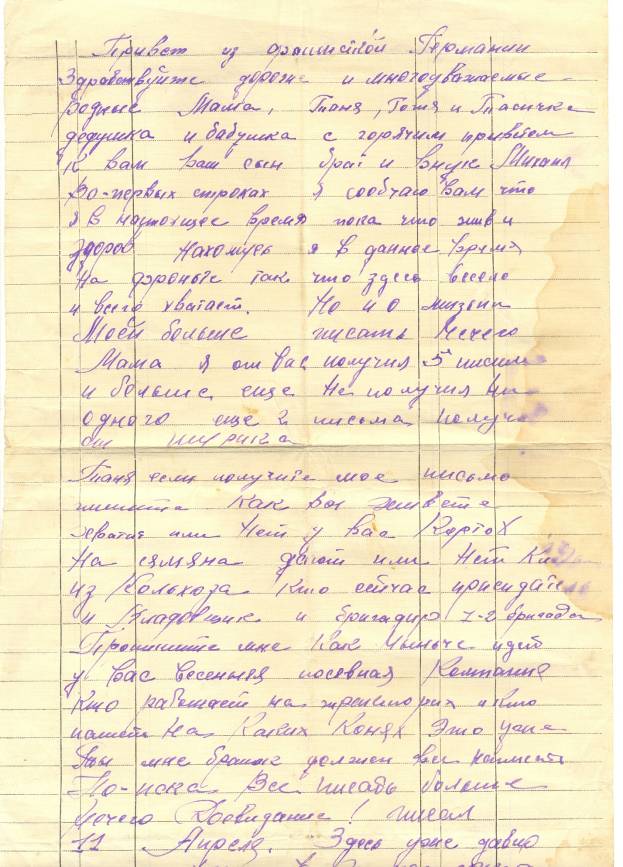 Привет из фашисткой Германии
Здравствуйте дорогие и многоуважаемые
родные Мама, Таня, Гоня и Тасичка
дедушка и бабушка с горячим приветом
к вам ваш сын брат и внук Михаил
Во-первых строках я сообчаю вам что
я в настоющее время пока что жив и
здоров Нахожусь я в данное время
на фронте так что здесь весело
и всего хватает. Но и о жизни
Моей больше писать Нечего
Мама я от вас получил 5 писим
и больше еще не получил ни
одного еще 2 письма получил
от Шурика
Таня если получите мое письмо
пишите как вы живете
хватит или Нет у вас Картох
На сямяна дают или Нет
из Кольхоза Кто сейчас присидатель
и Кладовщик и бригадир 1-2 бригады
Пропишите мне Как нынче идет
у вас весенняя посевная Компания
Кто работает на и кто
пашет На Каких Конях Это уже
мне браток должен все написать
По-пока Все писать больше
Нечего Досвидание! писал
11 Апреля. Здесь уже давно